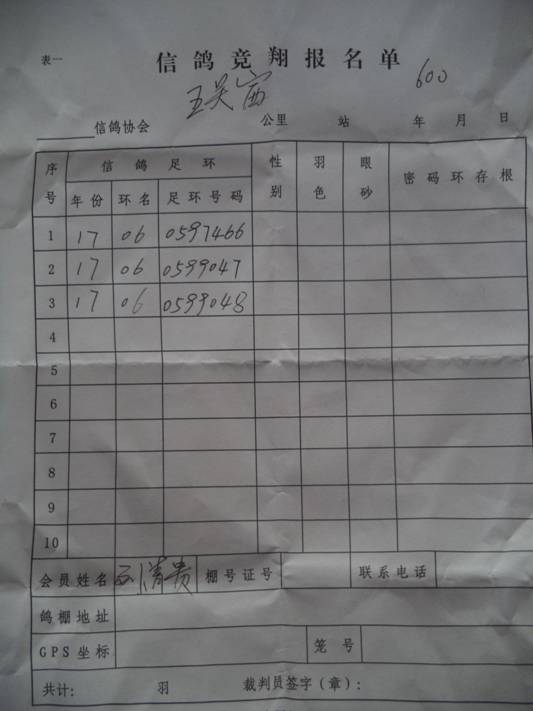 表一
信鸽竞翔报名单
600
信鸽协会 公里 站 年 月 日
序号 信鸽足环 性别 羽色 眼砂 密码环存根
年份 环名 足环号码
1 17 06 0597466
2 17 06 0599047
3 17 06 0599048
4
5
6
7
8
9
10
会员姓名 清贵 棚号证号 联系电话
鸽棚地址
GPS坐标 笼号
共计: 羽 裁判员签字(章):